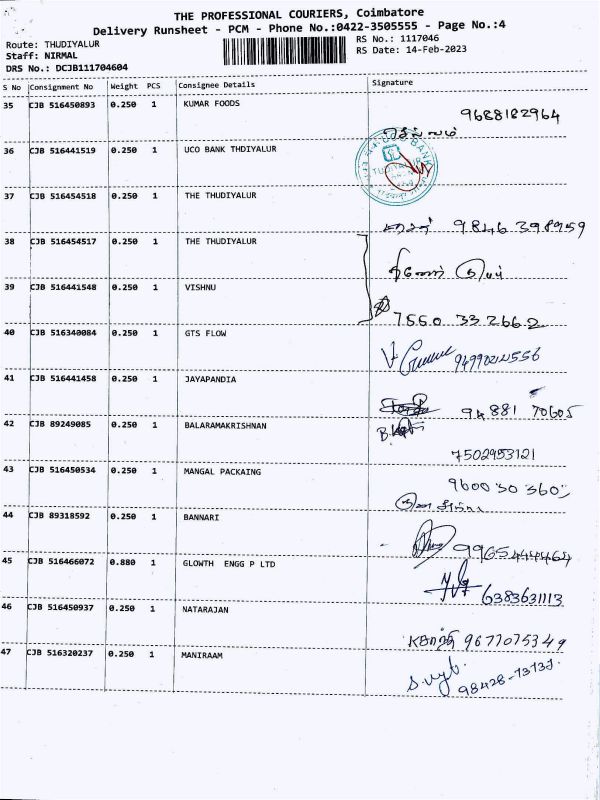 THE PROFESSIONAL COURIERS, Coimbatore
Delivery Runsheet - PCM - Phone No.:0422-3505555 - Page No.:4
Route: THUDIYALUR
RS No.: 1117046
Staff: NIRMAL
RS Date: 14-Feb-2023
DRS No.: DCJB111704604
S No Consignment No Weight PCS Consignee Details Signature
35 CJB 516450893 0.250 1 KUMAR FOODS
9688182964
செல்லம்
36 CJB 516441519 0.250 1 UCO BANK THDIYALUR
UCO BANK
37 CJB 516454518 0.250 1 THE THUDIYALUR
9846398959
38 CJB 516454517 0.250 1 THE THUDIYALUR
39 CJB 516441548 0.250 1 VISHNU
7550 33 2662
40 CJB 516340084 0.250 1 GTS FLOW
41 CJB 516441458 0.250 1 JAYAPANDIA
94881 70605
42 CJB 89249085 0.250 1 BALARAMAKRISHNAN
7502953121
43 CJB 516450534 0.250 1 MANGAL PACKAING
44 CJB 89318592 0.250 1 BANNARI
45 CJB 516466072 0.880 1 GLOWTH ENGG P LTD
6383631113
46 CJB 516450937 0.250 1 NATARAJAN
9677075349
47 CJB 516320237 0.250 1 MANIRAAM